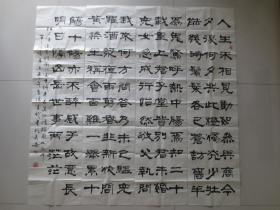 人生不相見動如參與商今
夕復何夕共此燈燭光少壯
能幾時鬢髮各已蒼訪舊半
為鬼驚呼熱中腸焉知二十
載重上君子堂昔別君未婚
兒女忽成行怡然敬父執問
我來何方問答乃未已驅兒
羅酒漿夜雨剪春韭新炊間
黃粱主稱會面難一舉累十
觴十觴亦不醉感子故意長
明日隔山岳世事兩茫茫